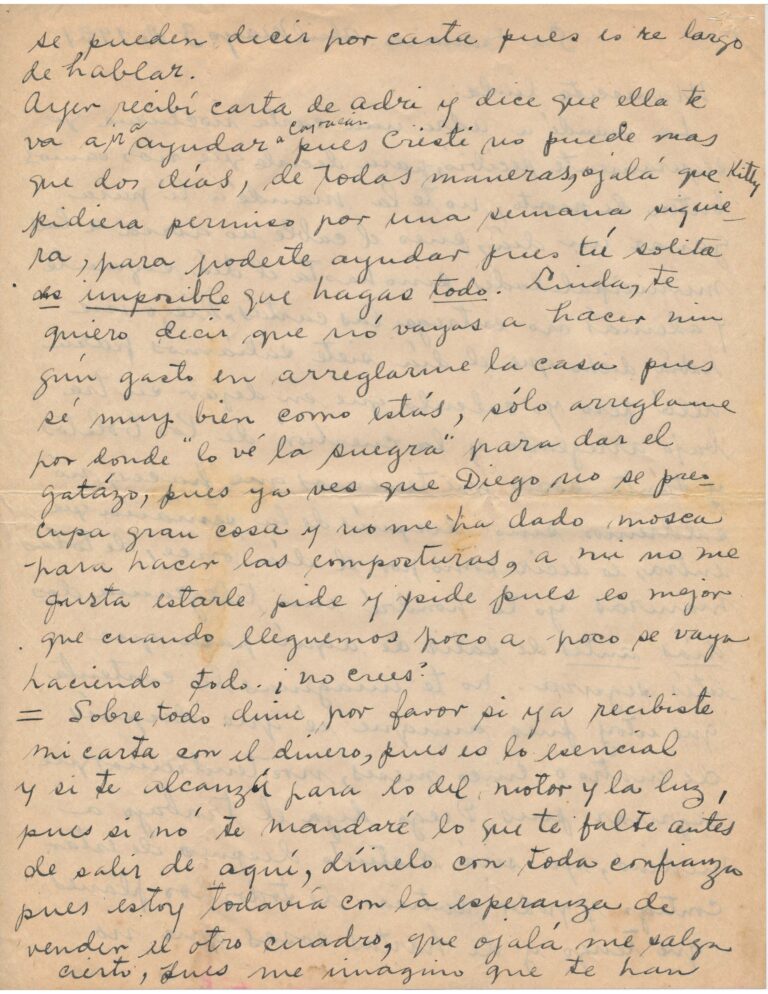 se pueden decir por carta pues es re largo
de hablar.
Ayer recibí carta de adri y dice que ella te
va a ir a ayudar a Coyoacán pues Cristi no puede mas
que dos días, de todas maneras, ojalá que Kitty
pidiera permiso por una semana siquie-
ra, para poderte ayudar pues tú solita
es imposible que hagas todo. Linda, te
quiero decir que nó vayas a hacer nin
gún gasto en arreglarme la casa pues
sé muy bien como estás, sólo arreglame
por donde "lo vé la suegra" para dar el
gatázo, pues ya ves que Diego no se pre-
cupa gran cosa y no me ha dado mosca
para hacer las composturas, a mi no me
gusta estarle pide y pide pues es mejor
que cuando lleguemos poco a poco se vaya
haciendo todo. ¡no crees?
= Sobre todo dime por favor si ya recibiste
mi carta con el dinero, pues es lo esencial
y si te alcanzá para lo del motor y la luz,
pues si nó te mandaré lo que te falte antes
de salir de aquí, dímelo con toda confianza
pues estoy todavía con la esperanza de
vender el otro cuadro, que ojalá me salga
cierto, pues me imagino que te han